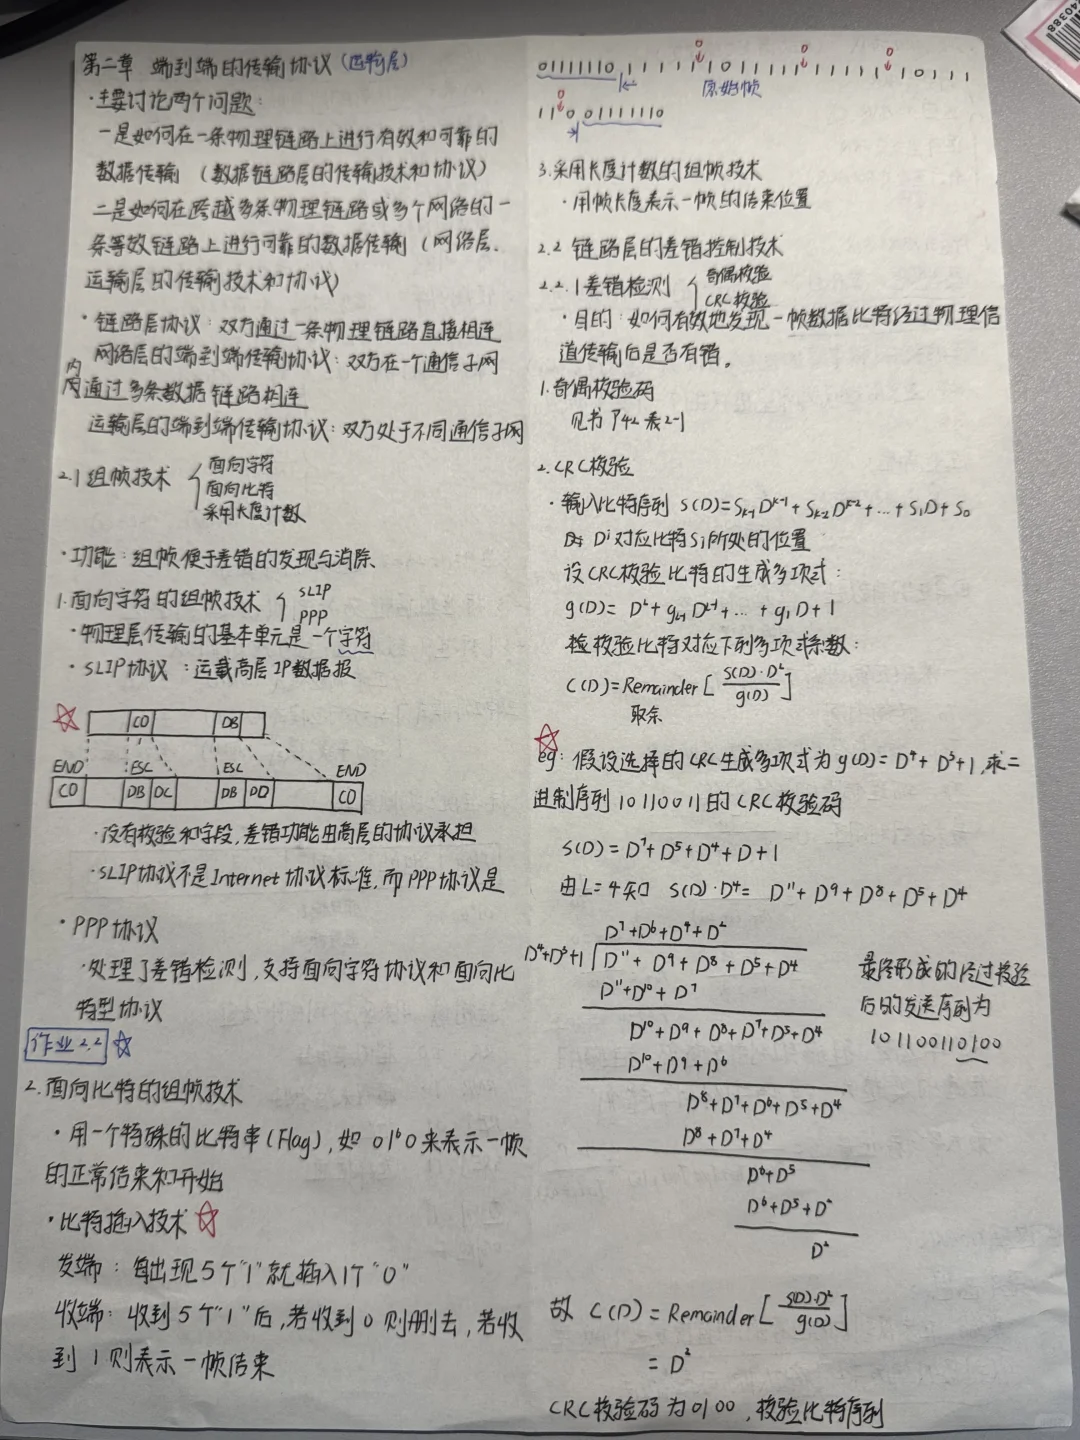 第二章 端到端的传输协议（运输层）
·主要讨论两个问题：
一是如何在一条物理链路上进行有效和可靠的
数据传输（数据链路层的传输技术和协议）
二是如何在跨越多条物理链路或多个网络的一
条等效链路上进行可靠的数据传输（网络层、
运输层的传输技术和协议）
·链路层协议：双方通过一条物理链路直接相连
网络层的端到端传输协议：双方在一个通信子网
内
通过多条数据链路相连
运输层的端到端传输协议：双方处于不同通信子网
2.1 组帧技术
面向字符
面向比特
采用长度计数
·功能：组帧便于差错的发现与消除、
1.面向字符的组帧技术
SLIP
PPP
·物理层传输的基本单元是一个字符
·SLIP协议：运载高层IP数据报
C0 DB
END ESC ESC END
C0 DB DC DB DD C0
·没有校验和字段,差错功能由高层的协议承担
·SLIP协议不是Internet协议标准,而PPP协议是
·PPP协议
·处理了差错检测,支持面向字符协议和面向比
特型协议
作业2.2
2.面向比特的组帧技术
·用一个特殊的比特串(Flag),如 01⁶0来表示一帧
的正常结束和开始
·比特插入技术
发端：每出现5个"1"就插入1个"0"
收端：收到5个"1"后,若收到0则删去,若收
到1则表示一帧结束
0 0 0
01111110 1 1 1 1 1 1 0 1 1 1 1 1 1 1 1 1 0 1 1 1
原始帧
0
1 1 0 01111110
3.采用长度计数的组帧技术
·用帧长度表示一帧的结束位置
2.2 链路层的差错控制技术
2.2.1差错检测
奇偶校验
CRC校验
·目的：如何有效地发现一帧数据比特经过物理信
道传输后是否有错。
1.奇偶校验码
见书P42表2-1
2.CRC校验
·输入比特序列 S(D)=Sₖ₋₁Dᵏ⁻¹+Sₖ₋₂Dᵏ⁻²+…+S₁D+S₀
Dⁱ对应比特Sᵢ所处的位置
设CRC校验比特的生成多项式：
g(D)= Dᴸ+gL-1Dᴸ⁻¹+…+g₁D+1
校验比特对应下列多项式系数：
C(D)=Remainder[S(D)·Dᴸ/g(D)]
取余
eg：假设选择的CRC生成多项式为g(D)=D⁴+D³+1,求二
进制序列10110011的CRC校验码
S(D)=D⁷+D⁵+D⁴+D+1
由L=4知 S(D)·D⁴= D¹¹+D⁹+D⁸+D⁵+D⁴
D⁷+D⁶+D⁴+D²
D⁴+D³+1 D¹¹+D⁹+D⁸+D⁵+D⁴
D¹¹+D¹⁰+D⁷
D¹⁰+D⁹+D⁸+D⁷+D⁵+D⁴
D¹⁰+D⁹+D⁶
D⁸+D⁷+D⁶+D⁵+D⁴
D⁸+D⁷+D⁴
D⁶+D⁵
D⁶+D⁵+D²
D²
最终形成的经过校验
后的发送序列为
101100110100
故 C(D)=Remainder[S(D)·Dᴸ/g(D)]
= D²
CRC校验码为0100,校验比特序列